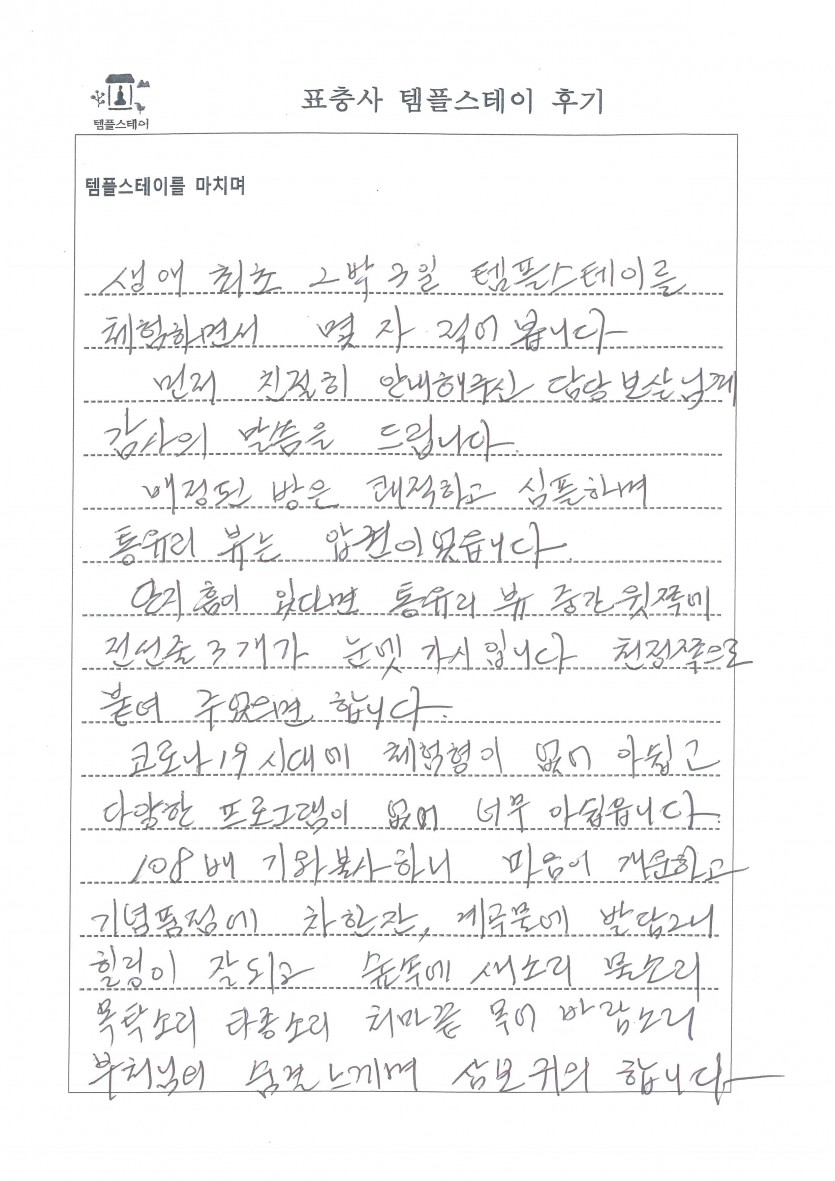 템플스테이
표충사 템플스테이 후기
템플스테이를 마치며
생애 최초 2박 3일 템플스테이를
체험하면서 몇 자 적어 봅니다
먼저 친절히 안내해주신 담당 보살님께
감사의 말씀을 드립니다.
배정된 방은 쾌적하고 심플하며
통유리 뷰는 압권이었읍니다.
단지 흠이 있다면 통유리 뷰 중간 윗쪽에
전선줄 3개가 눈엣 가시 입니다 천정쪽으로
붙여 주었으면 합니다.
코로나19 시대에 체험형이 없어 아쉽고
다양한 프로그램이 없어 너무 아쉽읍니다.
108배 기와불사하니 마음이 개운하고
기념품점에 차한잔, 계곡물에 발담그니
힐링이 잘되고 숲속에 새소리 물소리
목탁소리 타종소리 처마끝 목어 바람소리
부처님의 숨결느끼며 삼보귀의 합니다